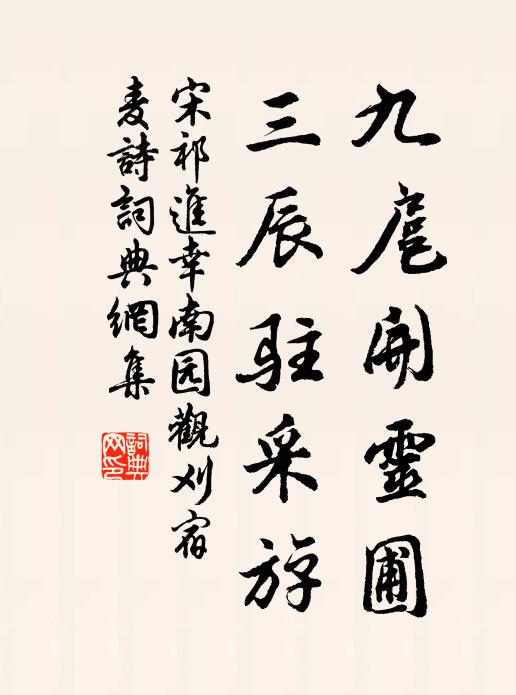 九扈開靈圃
三辰駐采斿
宋祁進幸南园觀刈宿
麦詩詞典網集
詞典
网印